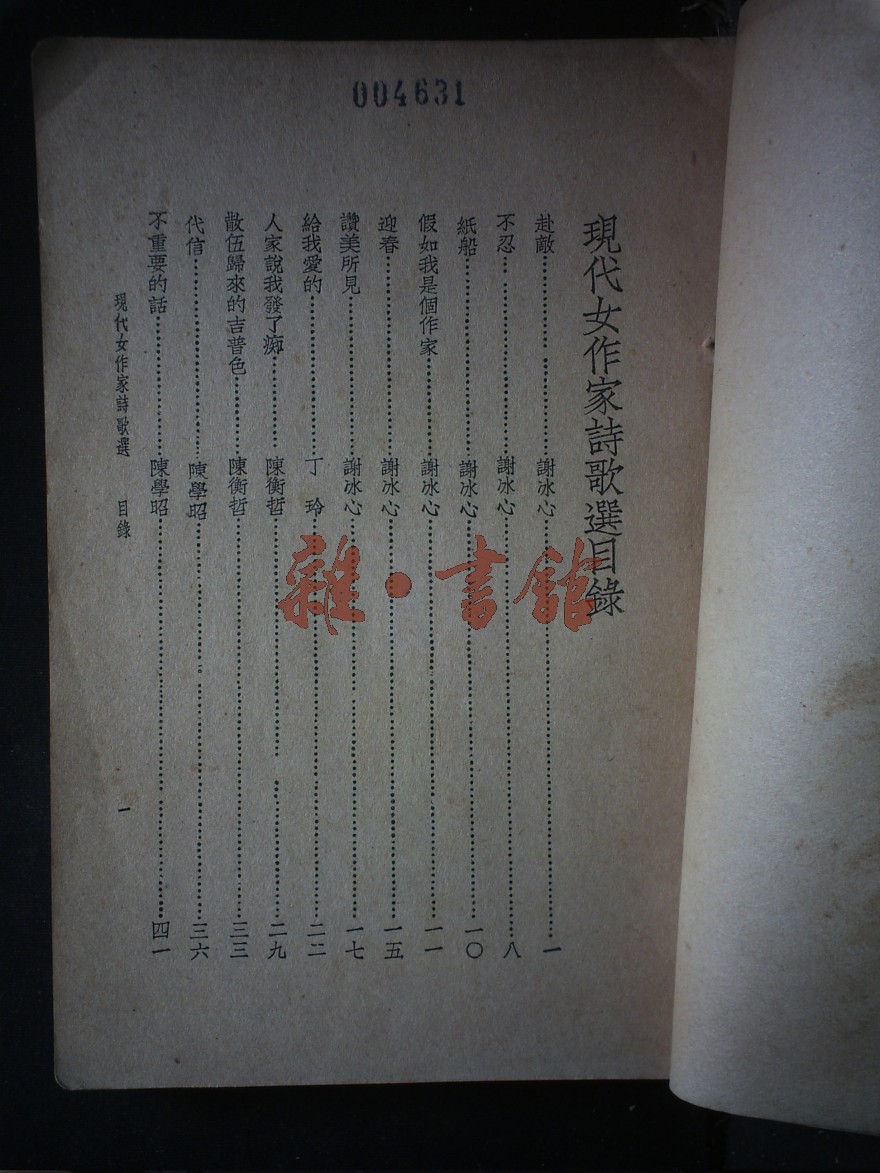 004631
現代女作家詩歌選目錄
赴敵……謝冰心……一
不忍……謝冰心……八
紙船……謝冰心……一〇
假如我是個作家……謝冰心……一一
迎春……謝冰心……一五
讚美所見……謝冰心……一七
給我愛的……丁 玲……二二
人家說我發了痴……陳衡哲……二九
散伍歸來的吉普色……陳衡哲……三三
代信……陳學昭……三六
不重要的話……陳學昭……四一
現代女作家詩歌選 目錄 一
雜·書館